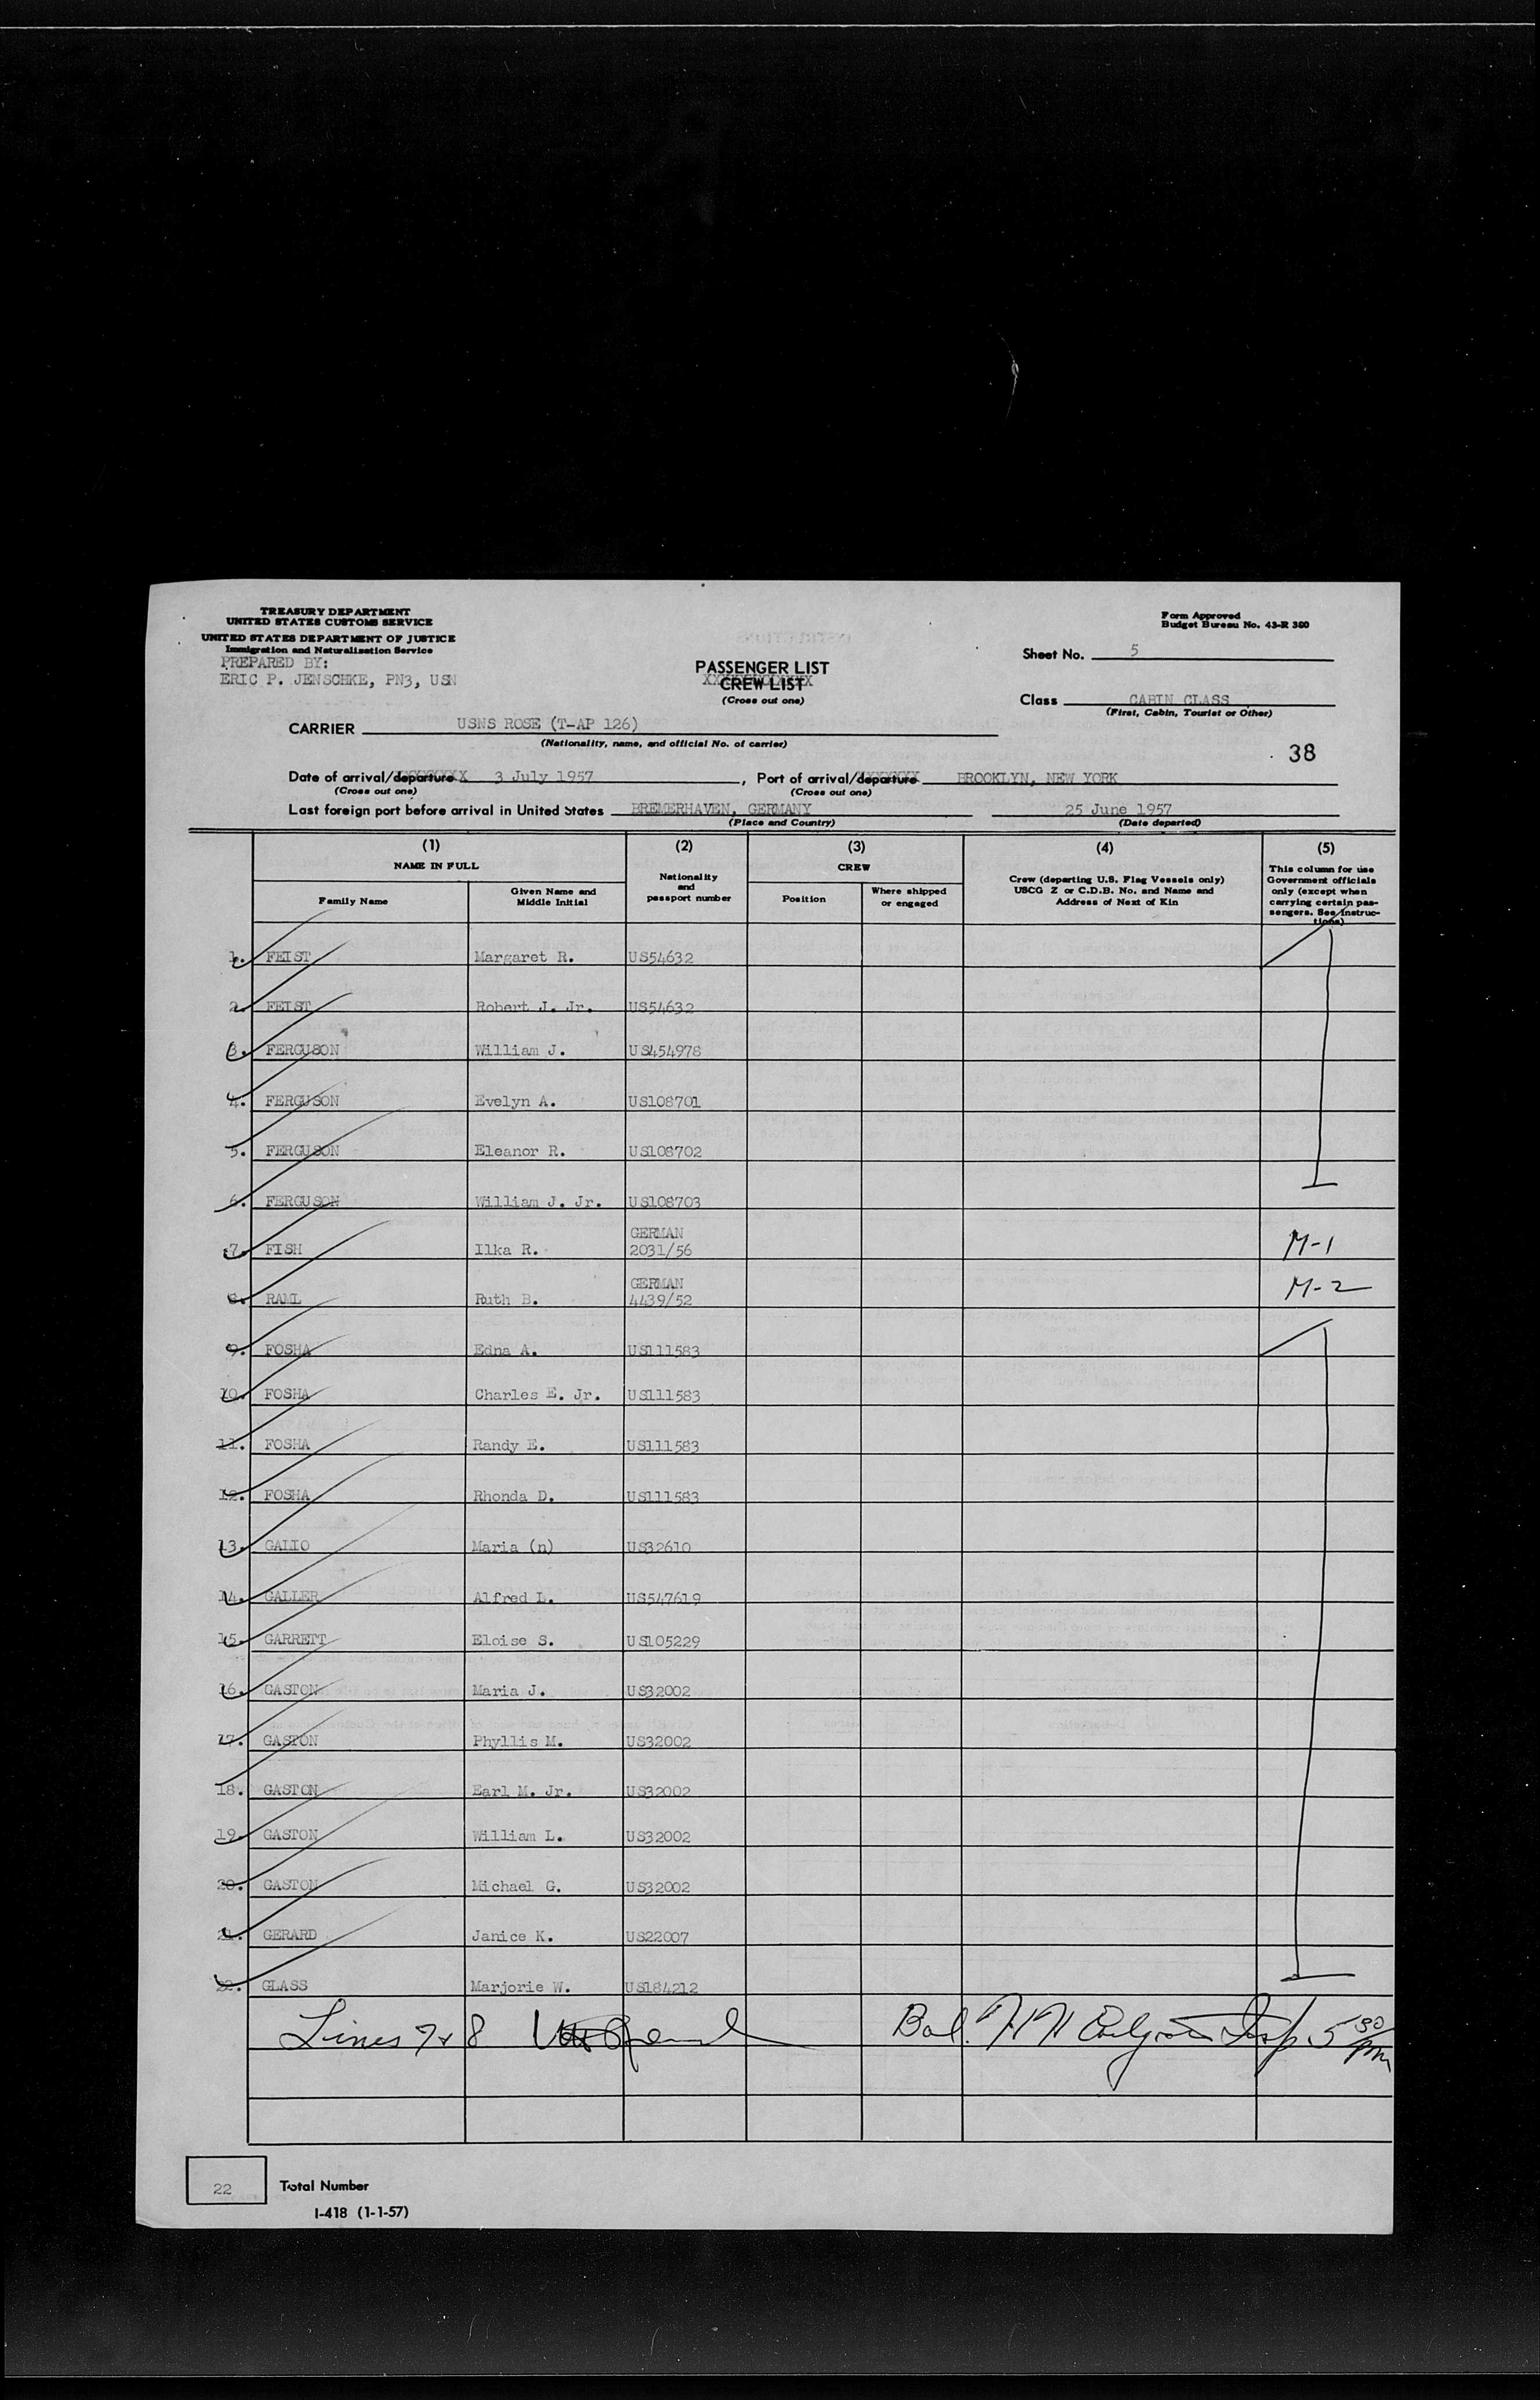 TREASURY DEPARTMENT
UNITED STATES CUSTOMS SERVICE
UNITED STATES DEPARTMENT OF JUSTICE
Immigration and Naturalization Service
PREPARED BY:
ERIC P. JENSCHKE, PN3, USN
Form Approved
Budget Bureau No. 43-R 380
Sheet No. 5
PASSENGER LIST
CREW LIST
(Cross out one)
Class CABIN CLASS
(First, Cabin, Tourist or Other)
CARRIER USNS ROSE (T-AP 126)
(Nationality, name, and official No. of carrier)
38
Date of arrival/departure 3 July 1957, Port of arrival/departure BROOKLYN, NEW YORK
(Cross out one) (Cross out one)
Last foreign port before arrival in United States BREMERHAVEN, GERMANY 25 June 1957
(Place and Country) (Date departed)
(1) (2) (3) (4) (5)
NAME IN FULL
Family Name
Given Name and Middle Initial
Nationality and passport number
CREW
Position
Where shipped or engaged
Crew (departing U.S. Flag Vessels only)
USCG Z or C.D.B. No. and Name and
Address of Next of Kin
This column for use
Government officials
only (except when
carrying certain pas-
sengers. See Instruc-
tions)
1. FEIST Margaret R. US54632
2. FEIST Robert J. Jr. US54632
3. FERGUSON William J. US454978
4. FERGUSON Evelyn A. US108701
5. FERGUSON Eleanor R. US108702
6. FERGUSON William J. Jr. US108703
7. FISH Ilka R. GERMAN 2031/56 M-1
8. RAML Ruth B. GERMAN 4439/52 M-2
9. FOSHA Edna A. US111583
10. FOSHA Charles E. Jr. US111583
11. FOSHA Randy E. US111583
12. FOSHA Rhonda D. US111583
13. GALIO Maria (n) US32610
14. GALLER Alfred L. US547619
15. GARRETT Eloise S. US105229
16. GASTON Maria J. US32002
17. GASTON Phyllis M. US32002
18. GASTON Earl M. Jr. US32002
19. GASTON William L. US32002
20. GASTON Michael G. US32002
21. GERARD Janice K. US22007
22. GLASS Marjorie W. US184212
Lines 7 & 8 Bal. Insp. 5 30 pm
22 Total Number
I-418 (1-1-57)